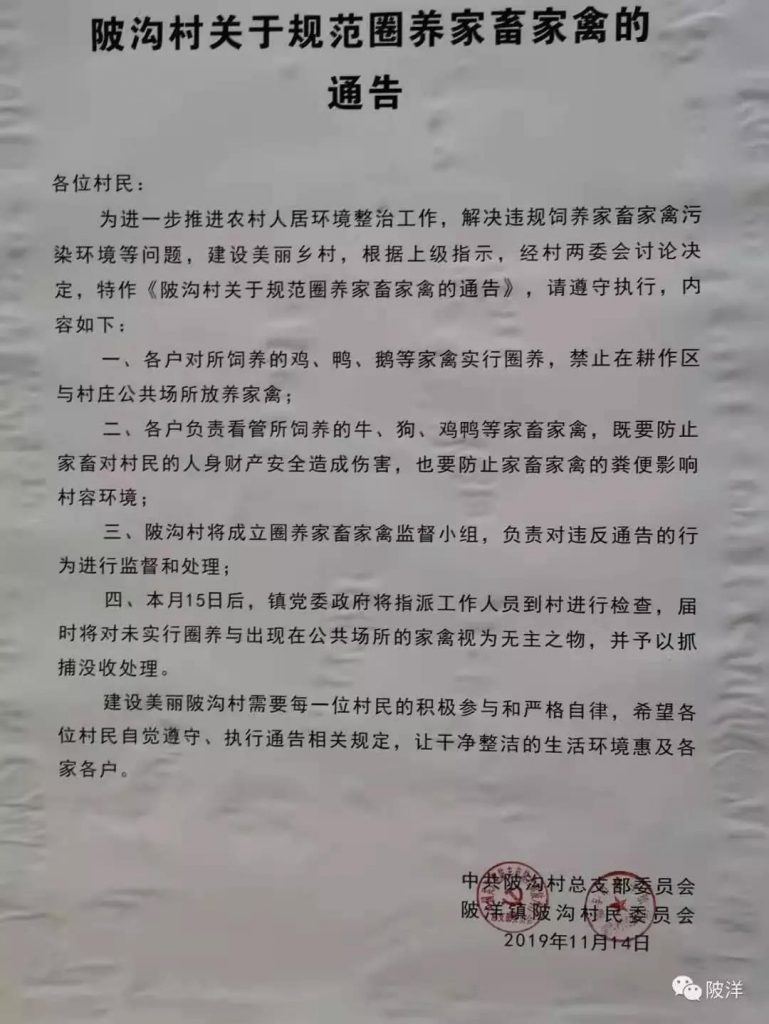 陂沟村关于规范圈养家畜家禽的
通告
各位村民：
为进一步推进农村人居环境整治工作，解决违规饲养家畜家禽污
染环境等问题，建设美丽乡村，根据上级指示，经村两委会讨论决
定，特作《陂沟村关于规范圈养家畜家禽的通告》，请遵守执行，内
容如下：
一、各户对所饲养的鸡、鸭、鹅等家禽实行圈养，禁止在耕作区
与村庄公共场所放养家禽；
二、各户负责看管所饲养的牛、狗、鸡鸭等家畜家禽，既要防止
家畜对村民的人身财产安全造成伤害，也要防止家畜家禽的粪便影响
村容环境；
三、陂沟村将成立圈养家畜家禽监督小组，负责对违反通告的行
为进行监督和处理；
四、本月15日后，镇党委政府将指派工作人员到村进行检查，届
时将对未实行圈养与出现在公共场所的家禽视为无主之物，并予以抓
捕没收处理。
建设美丽陂沟村需要每一位村民的积极参与和严格自律，希望各
位村民自觉遵守、执行通告相关规定，让干净整洁的生活环境惠及各
家各户。
中共陂沟村总支部委员会
陂洋镇陂沟村民委员会
2019年11月14日
陂洋